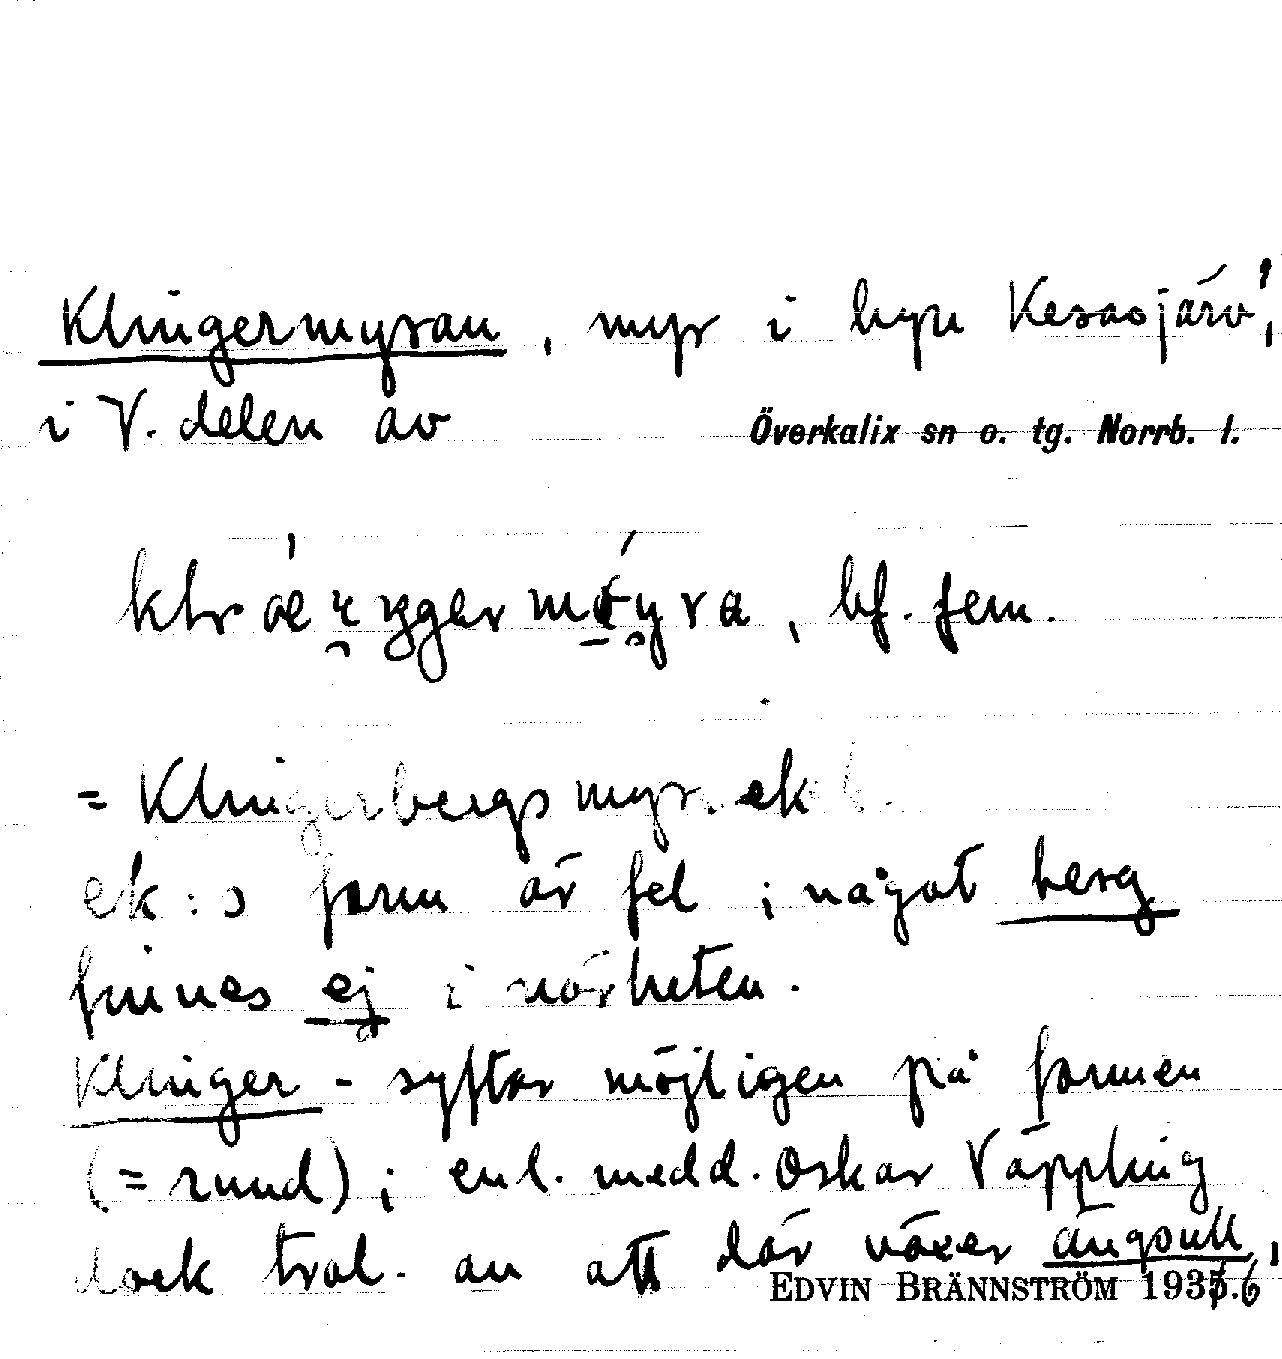 Klingermyran, myr i byn Kesasjärv,
i V. delen av Överkalix sn o. tg. Norrb. l.
bf. fem.
= Klingerbergsmyr. ek
ek:s form är fel; något berg
finnes ej i närheten.
Klinger- syftar möjligen på formen
(= rund); enl. medd. Oskar Väppling
dock trol. av att där växer ängsull,
EDVIN BRÄNNSTRÖM 1936